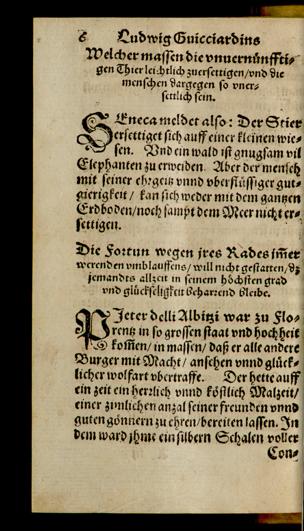 6 Ludwig Guicciardins
Welcher massen die vnuernünffti-
gen Thier leichtlich zuersettigen/vnd die
menschen dargegen so vner-
settlich sein.
SEneca meldet also: Der Stier
ersettiget sich auff einer kleinen wie-
sen. Vnd ein wald ist gnugsam vil
Elephanten zu erweiden. Aber der mensch
mit seiner ehrgeitz vnnd vberflüssiger gut-
gierigkeit / kan sich weder mit dem gantzen
Erdboden/noch sampt dem Meer nicht er-
settigen.
Die Fortun wegen jres Rades im̃er
werenden vmblauffens/ will nicht gestatten/dz
jemandts allzeit in seinem höchsten grad
vnd glückseligkeit beharrend bleibe.
PJeter delli Albitzi war zu Flo-
rentz in so grossen staat vnd hochheit
kom̃en/ in massen/ daß er alle andere
Burger mit Macht/ ansehen vnnd glück-
licher wolfart vbertraffe. Der hette auff
ein zeit ein herrlich vnnd köstlich Malzeit/
einer zimlichen anzal seiner freunden vnnd
guten gönnern zu ehren/bereiten lassen. In
dem ward jhme ein silbern Schalen voller
Con-